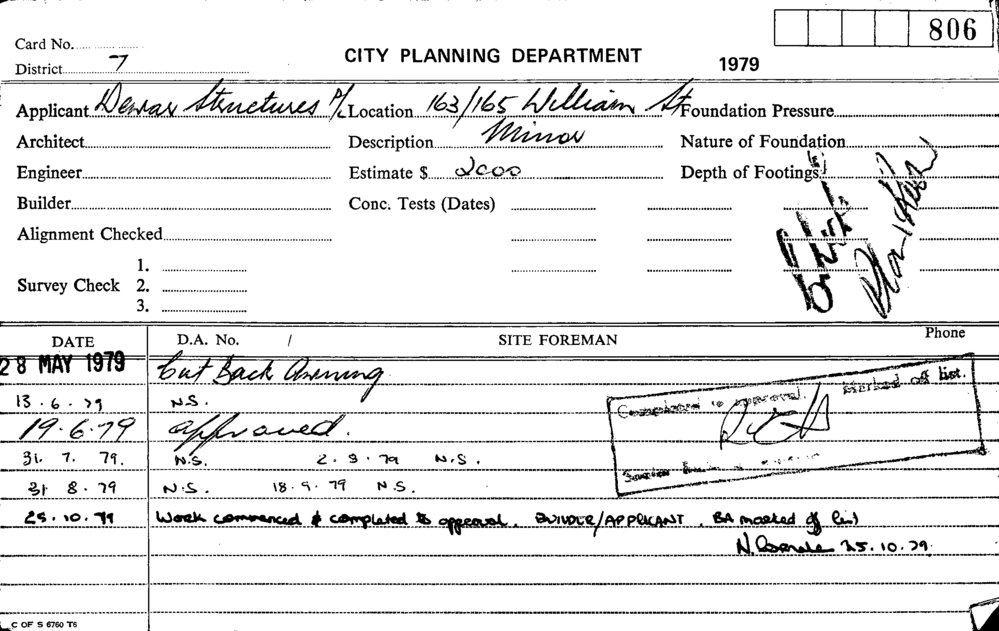 806
Card No.
CITY PLANNING DEPARTMENT
1979
District 7
Applicant Dewar Structures P/L Location 163/165 William St Foundation Pressure
Architect Description Minor Nature of Foundation
Engineer Estimate $ 2000 Depth of Footings
Builder Conc. Tests (Dates)
Alignment Checked
1.
Survey Check 2.
3.
DATE D.A. No. / SITE FOREMAN Phone
28 MAY 1979 Cut Back Awning
13.6.79 N.S.
19.6.79 approved.
31.7.79. N.S. 2.9.79 N.S.
31 8.79 N.S. 18.9.79 N.S.
Completed to approval. Marked off list.
Senior
25.10.79 Work commenced & completed to approval. BUILDER/APPLICANT. BA marked off list
N. 25.10.79.
C OF S 6760 T6